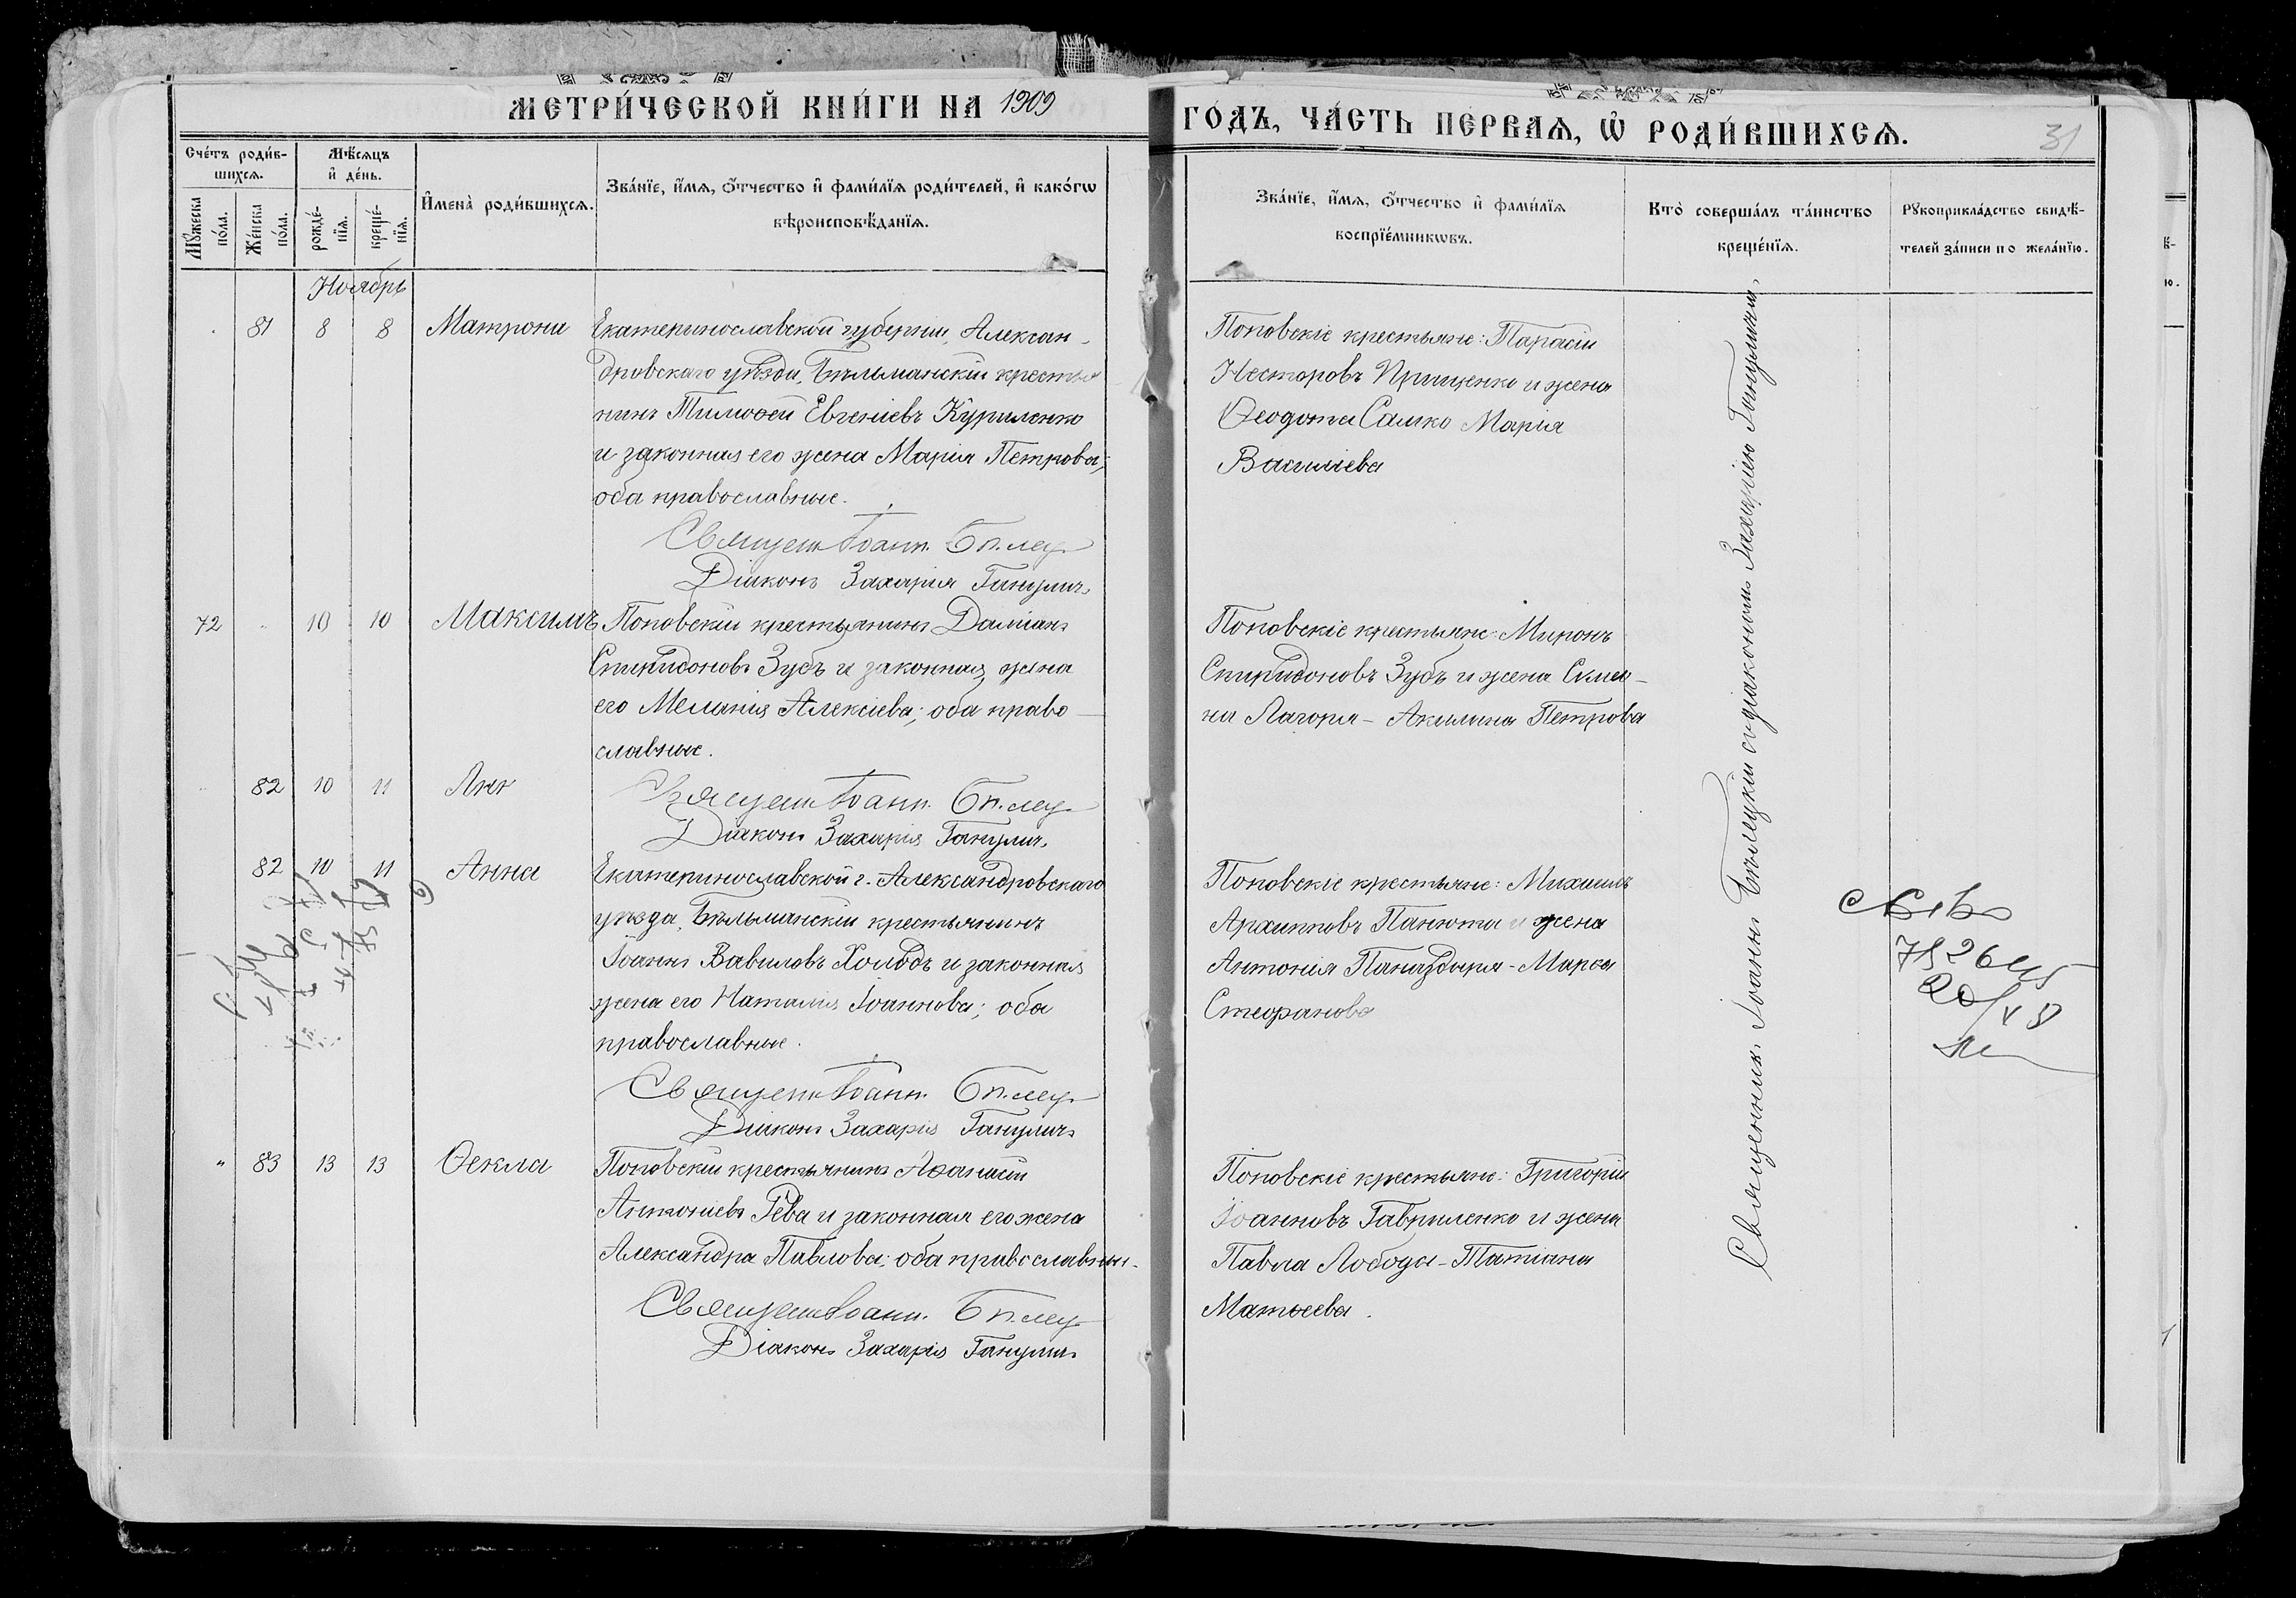 МЕТРИ́ЧЕСКОЙ КНИ́ГИ НА 1909
ГОДЪ, ЧА́СТЬ ПЕ́РВАѦ, Ѡ҆ РОДИ́ВШИХСѦ.
31
Сче́тъ роди́в-
шихсѧ.
Мѣ́сѧцъ
и҆ де́нь.
Мꙋ́жеска
по́ла.
Же́нска
по́ла.
рожде́-
нїѧ.
креще́-
нїѧ.
И҆мена̀ роди́вшихсѧ.
Зва́нїе, и҆́мѧ, ѻ҆́тчество и҆ фами́лїѧ роди́телей, и҆ како́гѡ
вѣроисповѣ́данїѧ.
Зва́нїе, и҆́мѧ, ѻ҆́тчество и҆ фами́лїѧ
воспрїе́мникѡвъ.
Кто̀ соверша́лъ та́инство
креще́нїѧ.
Рꙋкоприкла́дство свидѣ́-
телей за́писи по жела́нїю.
Ноябрь
81 8 8 Матрона
Екатеринославской губерніи, Алексан-
дровскаго уѣзда, Бѣльманскій крестья
нинъ Тимоѳей Евгеніевъ Куриленко
и законная его жена Марія Петрова;
оба православные.
Священ. Іоанн. Бѣлец
Діаконъ Захарія Ганулич
Поповскіе крестьяне: Тарасій
Несторовъ Прищенко и жена
Ѳеодота Самко Марія
Василіева
72 10 10 Максимъ
Поповскій крестьянинъ Даміанъ
Спиридоновъ Зубъ и законная жена
его Меланія Алексіева; оба право
славные.
Поповскіе крестьяне: Миронъ
Спиридоновъ Зубъ и жена Симео-
на Лагоря - Акилина Петрова
82 10 11 Анн
Священ. Іоанн. Бѣлец
Діаконъ Захарія Ганулич
82 10 11 Анна
Екатеринославской г. Александровскаго
уѣзда, Бѣльманскій крестьянинъ
Іоаннъ Вавиловъ Холодъ и законная
жена его Наталія Іоаннова; оба
православные.
Священ. Іоанн. Бѣлец
Діаконъ Захарія Ганулич
Поповскіе крестьяне: Михаилъ
Архипповъ Панюта и жена
Антонія Паназдыря - Марѳа
Стефанова
" 83 13 13 Ѳекла
Поповскій крестьянинъ Аѳанасій
Антоніевъ Рева и законная его жена
Александра Павлова; оба православны.
Священ. Іоанн. Бѣлец
Діаконъ Захарія Ганулич
Поповскіе крестьяне: Григорій
Іоанновъ Гавриленко и жена
Павла Лободы - Татіана
Матѳеева.
Священник. Іоаннъ Бѣлецкій съ діакономъ Захаріею Гануличъ.